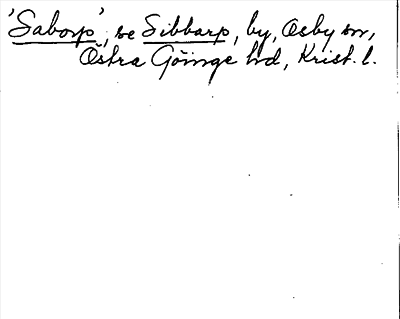 'Saborp', se Sibbarp, by, Osby sn,
Östra Göinge hd, Krist. l.